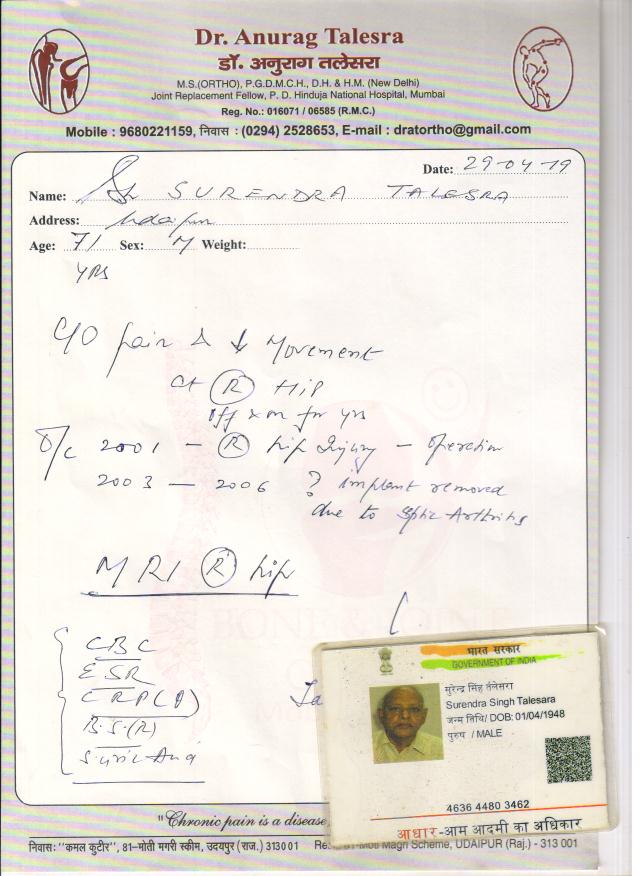 Dr. Anurag Talesra
डॉ. अनुराग तलेसरा
M.S.(ORTHO), P.G.D.M.C.H., D.H. & H.M. (New Delhi)
Joint Replacement Fellow, P. D. Hinduja National Hospital, Mumbai
Reg. No.: 016071 / 06585 (R.M.C.)
Mobile : 9680221159, निवास : (0294) 2528653, E-mail : dratortho@gmail.com
Date: 29-04-19
Name: Sh SURENDRA TALESRA
Address: Udaipur
Age: 71 Sex: M Weight:
YRS
C/O pain & ↓ Movement
at (R) HIP
off & on for yrs
O/c 2001 - (R) hip Injury - operation
2003 - 2006 ? implant removed
due to septic Arthritis
MRI (R) hip
CBC
ESR
CRP(Q)
B.S.(R)
S. uric Acid
BONE & JOINT
"Chronic pain is a disease,
निवास: "कमल कुटीर", 81-मोती मगरी स्कीम, उदयपुर (राज.) 313001 Magri Scheme, UDAIPUR (Raj.) - 313 001
भारत सरकार
GOVERNMENT OF INDIA
सुरेन्द्र सिंह तलेसरा
Surendra Singh Talesara
जन्म तिथि/ DOB: 01/04/1948
पुरुष / MALE
4636 4480 3462
आधार-आम आदमी का अधिकार